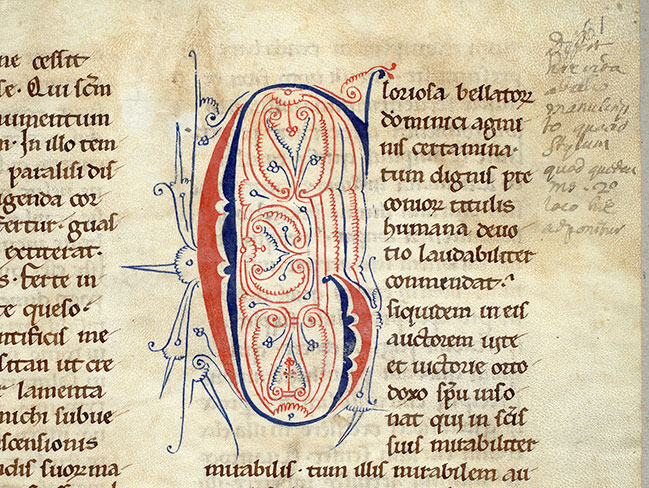 ne cessit
se. Qui scm
numentum
n. In illo tem
paralisi dis
igenda cor
fertur. gual
extiterat.
s. Ferte in
te queso.
ntificis me
sitan ut cre
lamenta
michi subue
scensionis
ndis suorma
Gloriosa bellator
dominici agmi
nis certamina.
tum dignis pre
conior titulis
humana deuo
tio laudabiliter
commendat.
siquidem in eis
auctorem
et uictorie orto
doxo spu inso
nat qui in scis
suis mirabiliter
mirabilis. tum illis mirabilem au
61
manuscrip
to quoad
stylum
quod quidem
ms. 2o
loco hic
adponitur